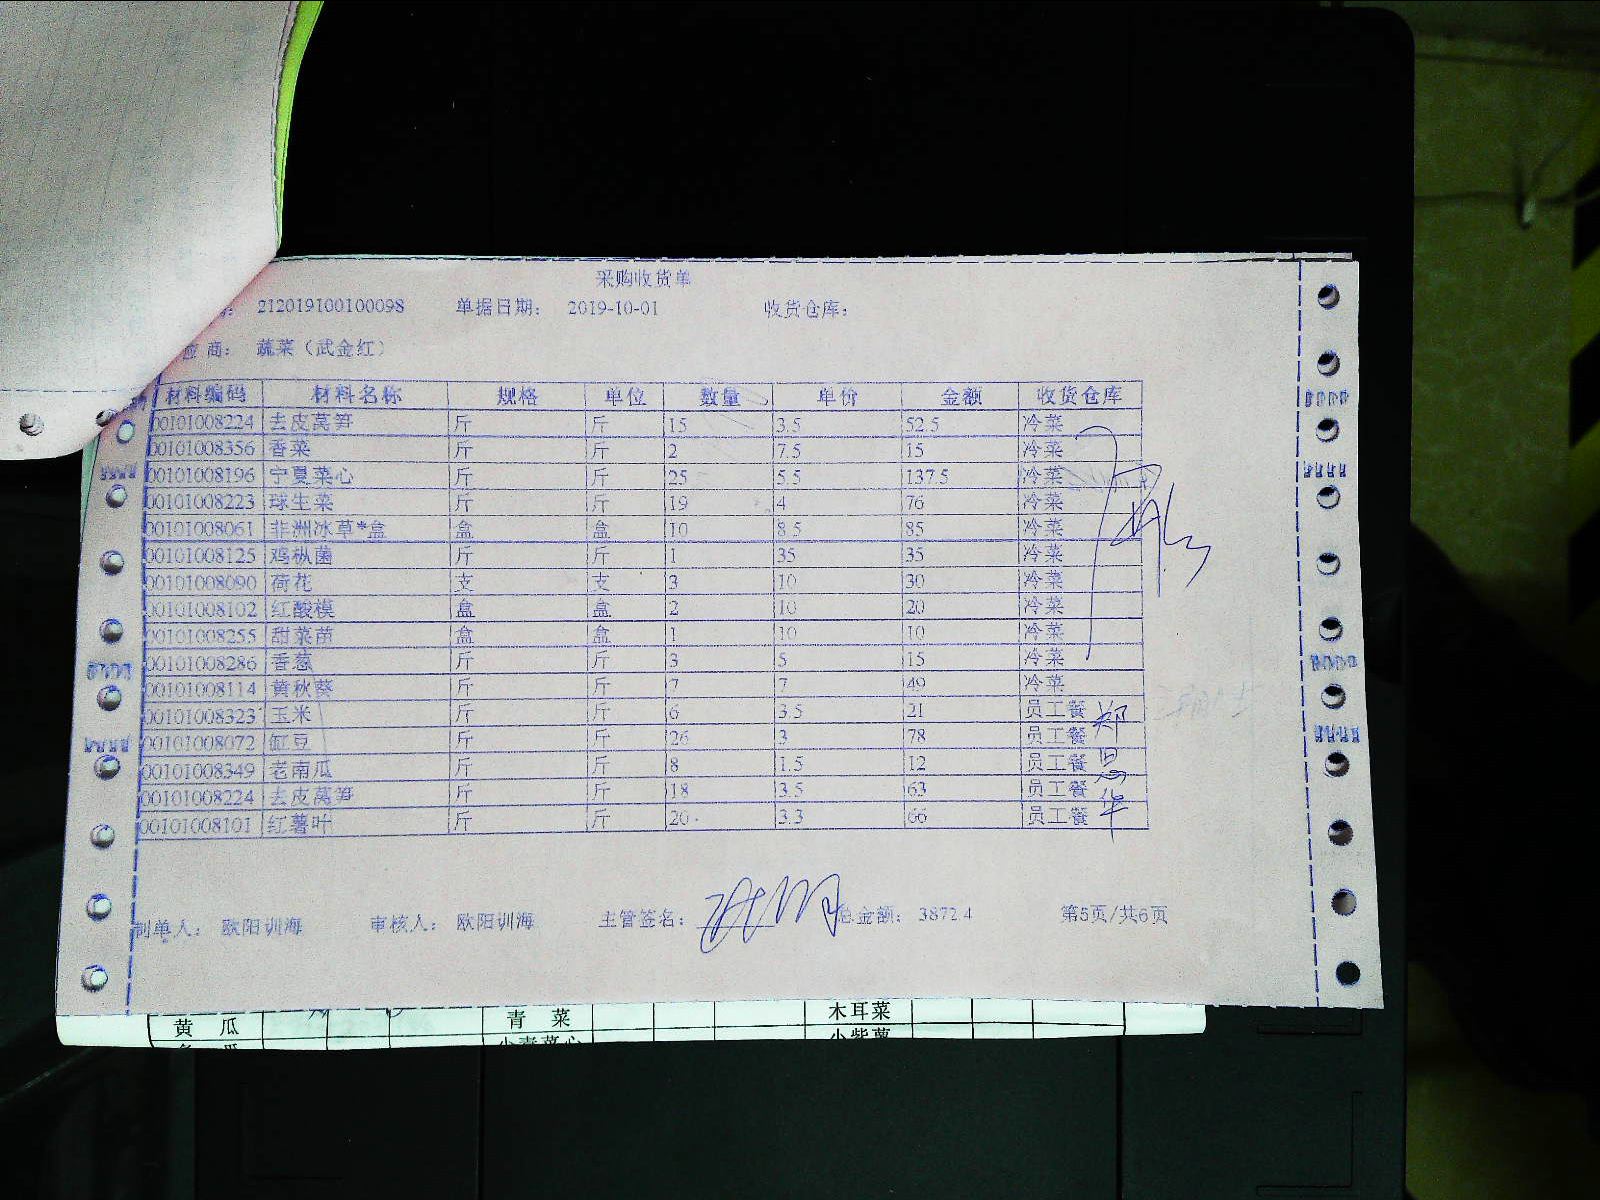 采购收货单
212019100100098 单据日期： 2019-10-01 收货仓库：
应商： 蔬菜（武金红）
材料编码 材料名称 规格 单位 数量 单价 金额 收货仓库
00101008224 去皮莴笋 斤 斤 15 3.5 52.5 冷菜
00101008356 香菜 斤 斤 2 7.5 15 冷菜
00101008196 宁夏菜心 斤 斤 25 5.5 137.5 冷菜
00101008223 球生菜 斤 斤 19 4 76 冷菜
00101008061 非洲冰草*盒 盒 盒 10 8.5 85 冷菜
00101008125 鸡枞菌 斤 斤 1 35 35 冷菜
00101008090 荷花 支 支 3 10 30 冷菜
00101008102 红酸模 盒 盒 2 10 20 冷菜
00101008255 甜菜苗 盒 盒 1 10 10 冷菜
00101008286 香葱 斤 斤 3 5 15 冷菜
00101008114 黄秋葵 斤 斤 7 7 49 冷菜
00101008323 玉米 斤 斤 6 3.5 21 员工餐
00101008072 缸豆 斤 斤 26 3 78 员工餐
00101008349 老南瓜 斤 斤 8 1.5 12 员工餐
00101008224 去皮莴笋 斤 斤 18 3.5 63 员工餐
00101008101 红薯叶 斤 斤 20 3.3 66 员工餐
郑
恩
华
制单人： 欧阳训海 审核人： 欧阳训海 主管签名： 总金额： 3872.4 第5页/共6页
黄 瓜 青 菜 木耳菜
小青菜心 小紫薯